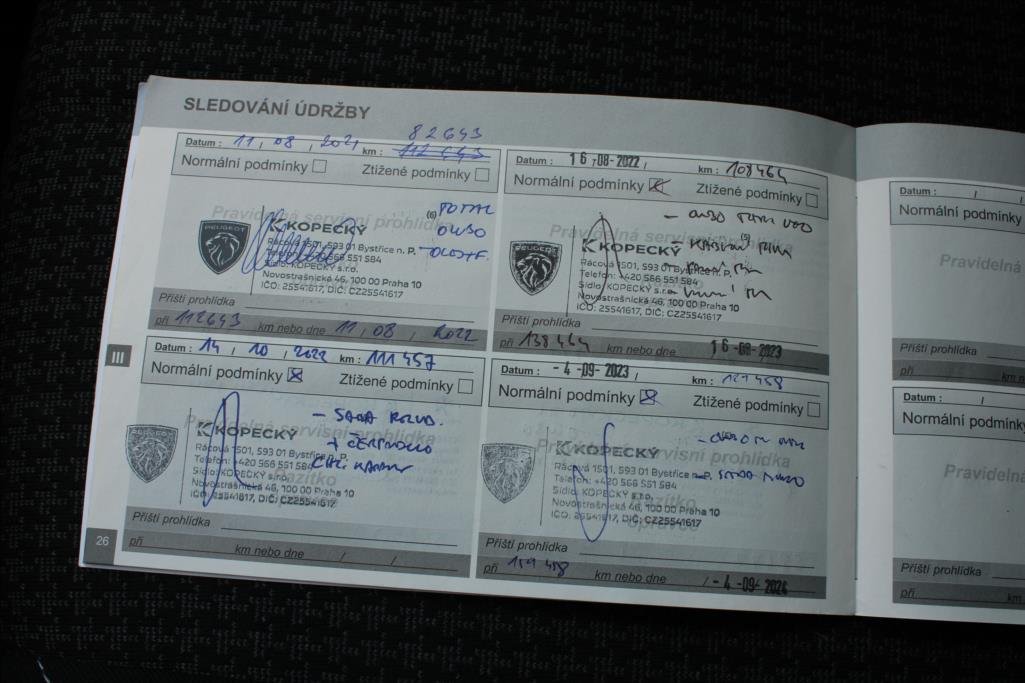 SLEDOVÁNÍ ÚDRŽBY
82643
Datum : 11 , 08 , 2021 km : 112 643
Normální podmínky Ztížené podmínky
Pravidelná servisní prohlídka
(6) TOTAL
PEUGEOT KOPECKÝ
Rácová 1501, 593 01 Bystřice n. P.
566 551 584
Sídlo: KOPECKÝ s.r.o.
Novostrašnická 46, 100 00 Praha 10
IČO: 25541617, DIČ: CZ25541617
Příští prohlídka
při 112643 km nebo dne 11 , 08 , 2022
Datum : 16 -08- 2022 / km : 108464
Normální podmínky Ztížené podmínky
(5)
PEUGEOT KOPECKÝ
Rácová 1501, 593 01 Bystřice n. P.
Telefon: +420 566 551 584
Sídlo: KOPECKÝ s.r.o.
Novostrašnická 46, 100 00 Praha 10
IČO: 25541617, DIČ: CZ25541617
Příští prohlídka
při 138464 km nebo dne 16 -08- 2023
III
Datum : 14 , 10 , 2022 km : 111 457
Normální podmínky Ztížené podmínky
- SADA ROZVD.
+ ČERPADLO
KOPECKÝ
Rácová 1501, 593 01 Bystřice n. P.
Telefon: +420 566 551 584
Sídlo: KOPECKÝ s.r.o.
Novostrašnická 46, 100 00 Praha 10
IČO: 25541617, DIČ: CZ25541617
Razítko
Příští prohlídka
při km nebo dne / /
26
Datum : - 4 -09- 2023 / km : 129458
Normální podmínky Ztížené podmínky
KOPECKÝ
Rácová 1501, 593 01 Bystřice n. P.
Telefon: +420 566 551 584
Sídlo: KOPECKÝ s.r.o.
Novostrašnická 46, 100 00 Praha 10
IČO: 25541617, DIČ: CZ25541617
Razítko
Příští prohlídka
při 159 458 km nebo dne / - 4 -09- 2024
Datum : / /
Normální podmínky
Pravidelná
Příští prohlídka
při km
Datum : / /
Normální podmínky
Pravidelná
Příští prohlídka
při km